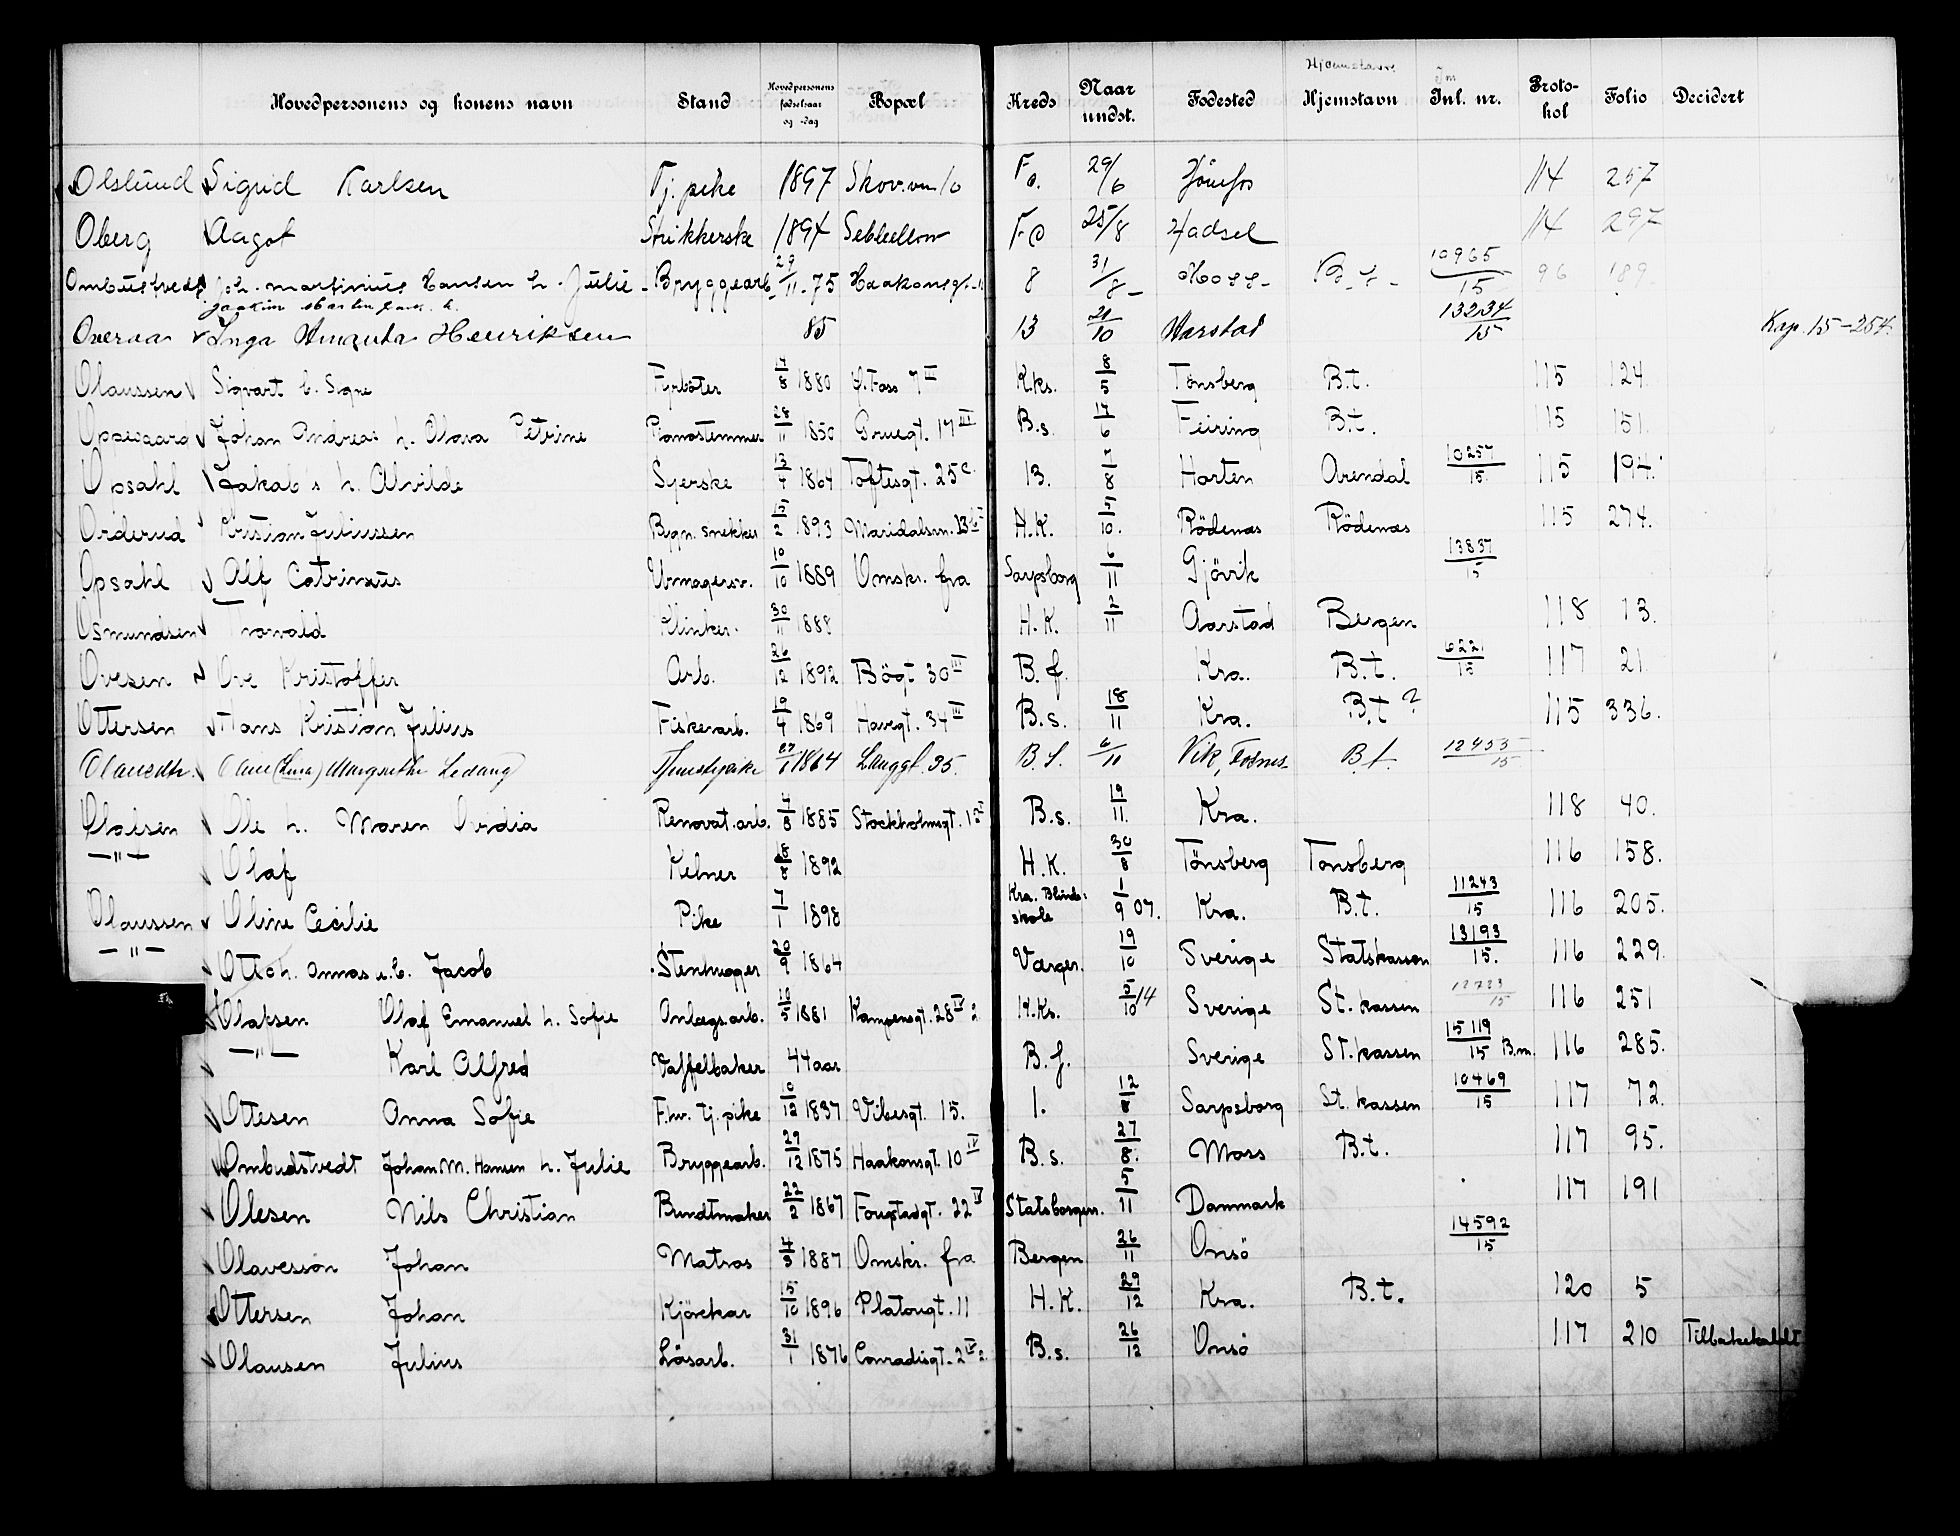 Hjemstavn
Hovedpersonens og konens navn Stand Hovedpersonens fødselsaar og -dag Bopæl Kreds Naar undst. Fødested Hjemstavn Jnl. nr. Protokol Folio Decidert
Olslund Sigrid Karlsen Tj. pike 1897 Skov.vn 10 F.o. 29/6 Hönefos 114 257
Oberg Aagot Strikkerske 1894 F.o 25/8 Hadsel 114 297
Ombustvedt Joh. Martinius Hansen h. Julie Bryggearb. 29/11 75 Haakonsgt. 8 31/8 Moss B.t. 10965/15 96 189
Overaa Inga Amanda Henriksen 85 13 21/10 Harstad 13234/15 Kop. 15-254.
Olaussen Sigvart h. Signe Fyrböter 17/8 1880 7 III K.ks. 8/5 Tönsberg B.t. 115 124.
Oppegaard Johan Andreas h. Olava Petrine Pianostemmer 28/11 1850 Gruegt. 17 III B.s. 17/6 Feiring B.t. 115 151.
Opsahl Jakobs h. Alvilde Syerske 13/4 1864 Toftesgt. 25c. 13. 7/8 Horten Arendal 10257/15. 115 194.
Orderud Kristian Juliussen Bygn. snekker 15/2 1893 Maridalsvn. H.K. 5/10. Rödenæs Rödenæs 115 274.
Opsahl Alf Catrinius Urmagersv. 10/10 1889 Omskr. fra Sarpsborg 6/11 Gjövik 13837/15
Osmundsen Trovald Klinker. 30/11 1888 H.K. 2/11 Aarstad Bergen 118 13.
Ovesen Ove Kristoffer Arb. 26/12 1892 Bögt 30 III B.f. Kra. B.t. 6221/15 117 21.
Ottersen Hans Kristian Julius Fiskerarb. 19/4 1869 Havgt. 34 III B.s. 18/11 Kra. B.t? 115 336.
Olavedtr. Oline (Lina) Margrethe Ledang Tjenestepike 27/6 1864 Langgt. 35. B.S. 6/11 Vik, Fosnes B.t. 12455/15
Olaisen Ole h. Maren Ovidia Renovat.arb. 4/8 1885 Stockholmsgt. B.s. 19/11. Kra. 118 40.
—"— Olaf Kelner 8/8 1892 H.K. 30/8 Tönsberg Tonsberg 116 158.
Olaussen Oline Cecilie Pike 7/1 1898 Kra. Blindeskole 1/9 07. Kra. B.t. 11243/15 116 205.
—"— Ottoh. Annas e.h. Jacob Stenhugger 20/9 1864 Varger. 19/10 Sverige Statskassen 13193/15. 116 229.
Olafsen Olaf Emanuel h. Sofie Anlægsarb. 10/5 1881 Kampensgt. 28 IV 2 K.Ks. 5/10 14 Sverige St. kassen 12723/15 116 251
—"— Karl Alfred Vaffelbaker 44 aar B.f. Sverige St. kassen 15119/15 B.m. 116 285.
Ottesen Anna Sofie F.hv. tj. pike 10/12 1837 Vibesgt. 15. 1. 12/8 Sarpsborg St. kassen 10469/15 117 72.
Ombudstvedt Johan M. Hansen h. Julie Bryggearb. 29/12 1875 Haakonsgt. 10 IV B.s. 27/8. Moss B.t. 117 95.
Olesen Nils Christian Bundtmaker 22/2 1867 Fougstadgt. 22 IV Statsborgen. 5/11 Danmark 117 191
Olavesson Johan Matros 4/5 1887 Omskr. fra Bergen 26/11 Onsö 14592/15
Ottersen Johan Kjörekar 15/10 1896 Platougt. 11 H.K. 29/12 Kra. B.t. 120 5
Olausen Julius Løsarb. 31/1 1876 Conradisgt. 2 IV 2. B.s. 26/12 Onsö 117 210 Tilbakekaldt